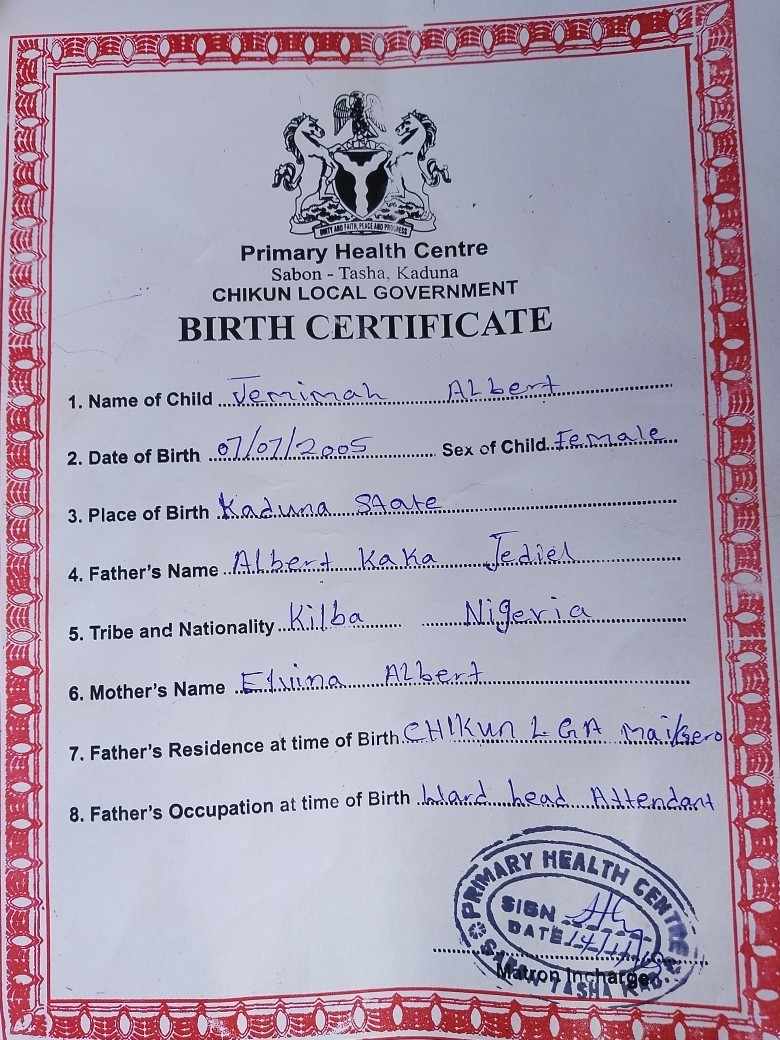 UNITY AND FAITH, PEACE AND PROGRESS
Primary Health Centre
Sabon - Tasha, Kaduna
CHIKUN LOCAL GOVERNMENT
BIRTH CERTIFICATE
1. Name of Child Jemimah Albert
2. Date of Birth 07/07/2005 Sex of Child Female
3. Place of Birth Kaduna State
4. Father's Name Albert Kaka Jediel
5. Tribe and Nationality Kilba Nigeria
6. Mother's Name Albert
7. Father's Residence at time of Birth CHIKUN LGA
8. Father's Occupation at time of Birth Ward head Attendant
PRIMARY HEALTH CENTRE
SIGN
DATE
Matron Incharge